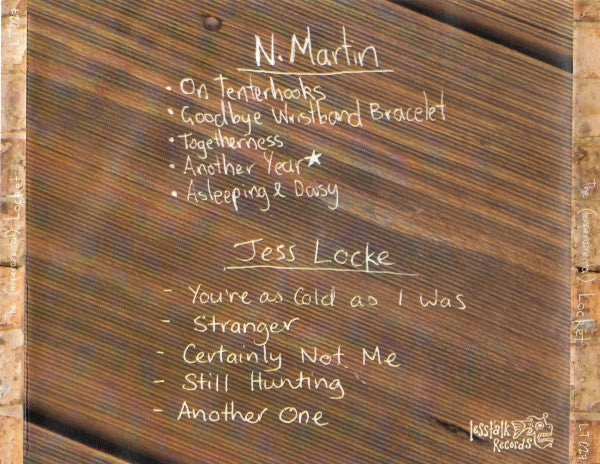 N. Martin
• On Tenterhooks
• Goodbye Wristband Bracelet
• Togetherness
• Another Year ★
• Asleeping & Daisy
Jess Locke
- You're as Cold as I Was
- Stranger
- Certainly Not Me
- Still Hunting
- Another One
lesstalk
Records
The
Locket
LT 029